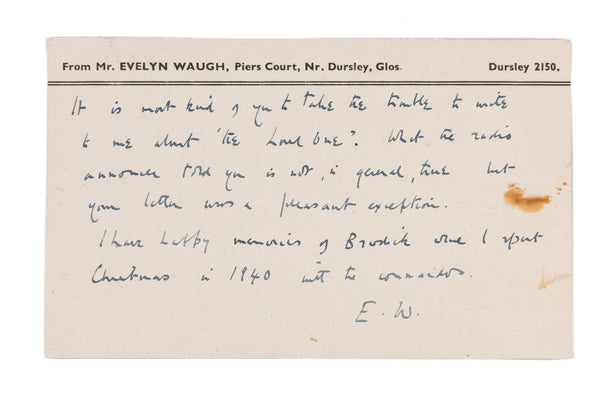 From Mr. EVELYN WAUGH, Piers Court, Nr. Dursley, Glos. Dursley 2150.
It is most kind of you to take the trouble to write
to me about 'the Loved One'. What the radio
announcer told you is not, in general, true but
your letter was a pleasant exception.
I have happy memories of Brodick where I spent
Christmas in 1940 with the commandos.
E. W.